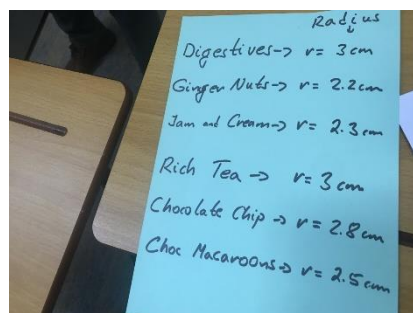 Radius
↓
Digestives → r = 3 cm
Ginger Nuts → r = 2.2cm
Jam and Cream → r = 2.3cm
Rich Tea → r = 3 cm
Chocolate Chip → r = 2.8cm
Choc Macaroons → r = 2.5cm